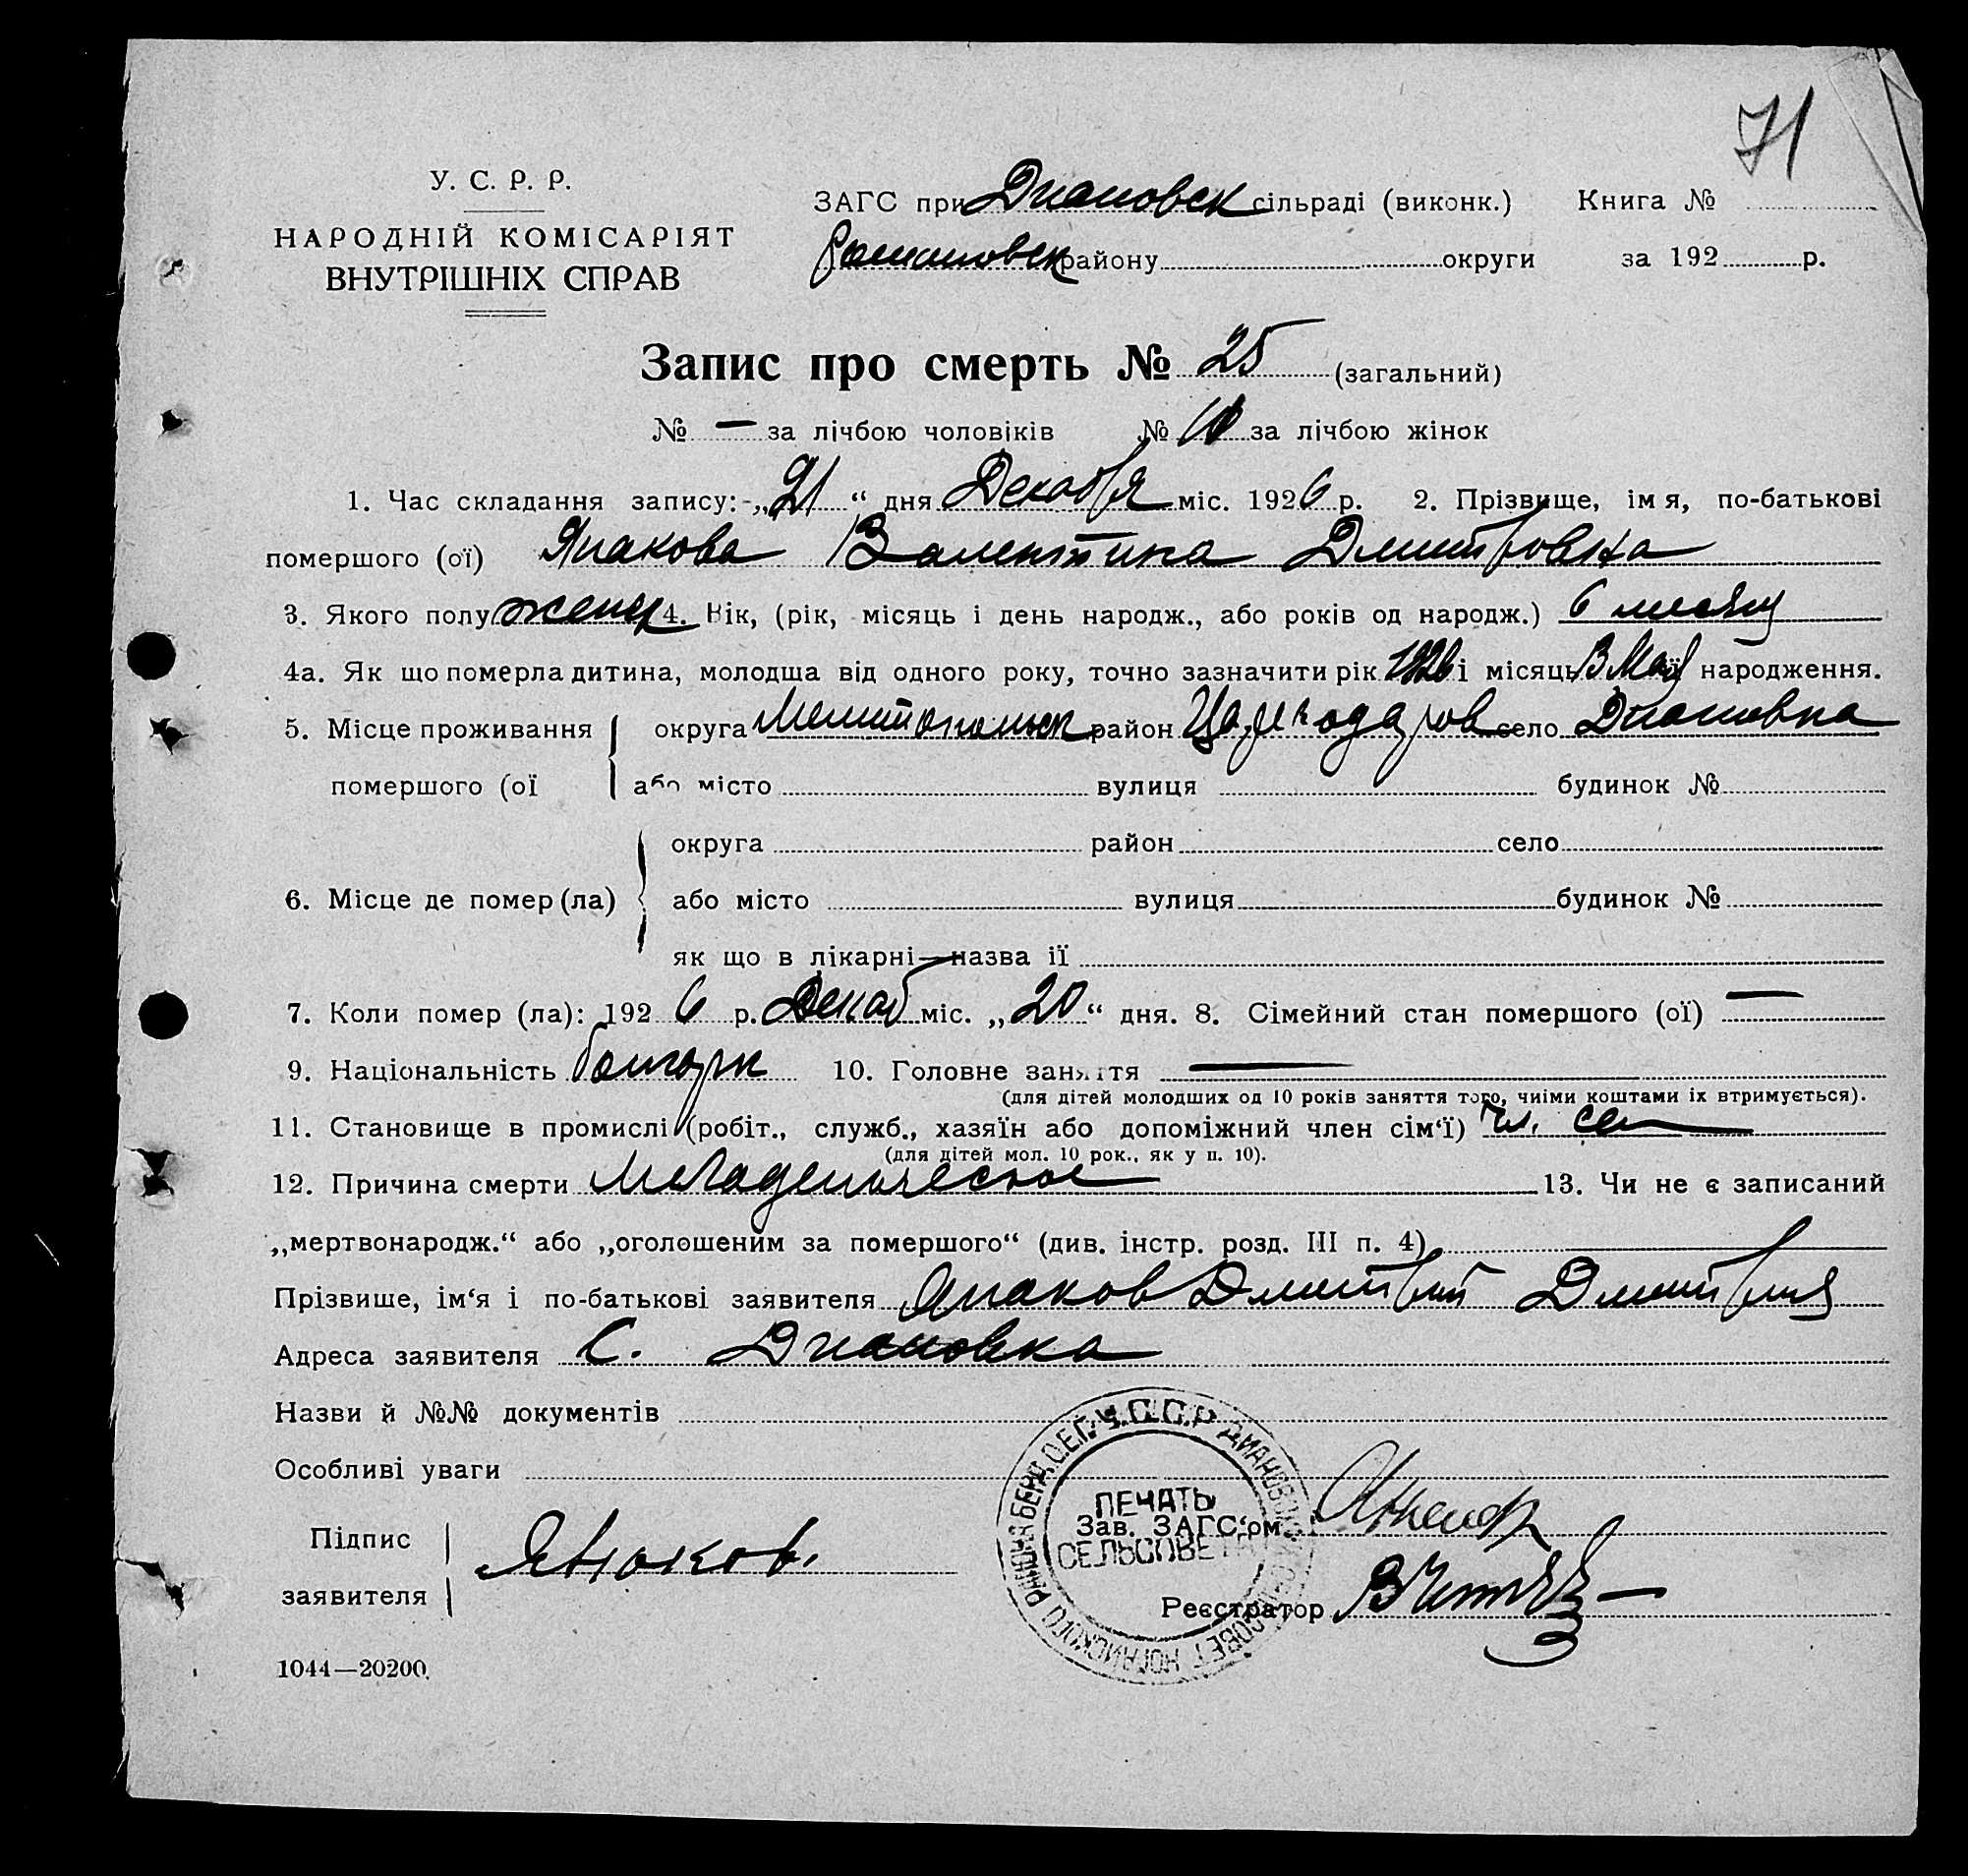 71
У. С. Р. Р.
НАРОДНІЙ КОМІСАРІЯТ
ВНУТРІШНІХ СПРАВ
ЗАГС при Диановск сільраді (виконк.) Книга №
району округи за 192 р.
Запис про смерть № 25 (загальний)
№ — за лічбою чоловіків № 10 за лічбою жінок
1. Час складання запису: „21“ дня Декабря міс. 1926 р. 2. Прізвище, імя, по-батькові
помершого (ої) Япакова Валентина Дмитровна
3. Якого полу женск 4. Вік, (рік, місяць і день народж., або років од народж.) 6 месяц
4а. Як що померла дитина, молодша від одного року, точно зазначити рік 1926 і місяць Мая народження.
5. Місце проживання округа Мелитопольск район Цареводаров село Диановка
помершого (ої або місто вулиця будинок №
округа район село
6. Місце де помер (ла) або місто вулиця будинок №
як що в лікарні—назва ії
7. Коли помер (ла): 1926 р. Декаб міс. „20“ дня. 8. Сімейний стан помершого (ої) —
9. Національність болгарк 10. Головне заняття —
(для дітей молодших од 10 років заняття того, чиїми коштами іх втримується).
11. Становище в промислі (робіт., служб., хазяїн або допоміжний член сім‘ї) чл. сем
(для дітей мол. 10 рок., як у п. 10).
12. Причина смерти Младенческое 13. Чи не є записаний
„мертвонародж.“ або „оголошеним за помершого“ (див. інстр. розд. III п. 4)
Прізвише, ім‘я і по-батькові заявителя Япаков Дмитрий Дмитрия
Адреса заявителя с. Диановка
Назви й №№ документів
Особливі уваги
Підпис
заявителя
У.С.С.Р ДИАНОВСК СОВЕТ НОГАЙСКОГО РАЙОНА БЕРД.
ПЕЧАТЬ
СЕЛЬСОВЕТА
Зав. ЗАГС‘ом
Реєстратор
1044—20200.